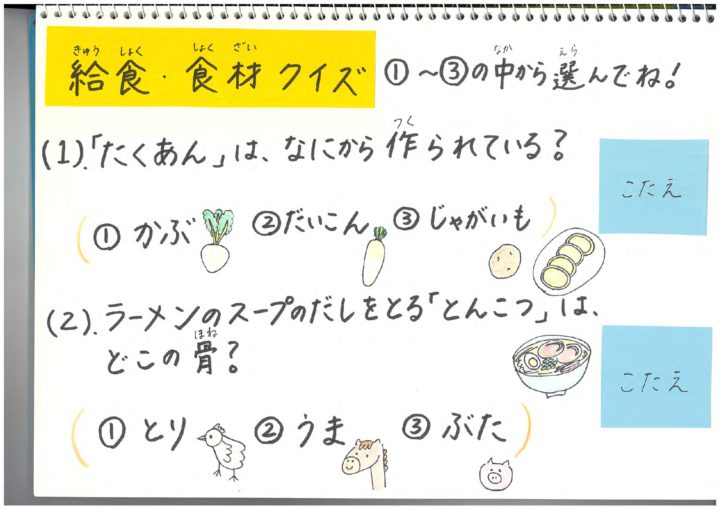 給食・食材クイズ ①～③の中から選んでね！
(1).「たくあん」は、なにから作られている？
こたえ
① かぶ ②だいこん ③じゃがいも
(2).ラーメンのスープのだしをとる「とんこつ」は、
どこの骨？
こたえ
① とり ② うま ③ ぶた
きゅう しょく しょく ざい なか えら
つく
ほね